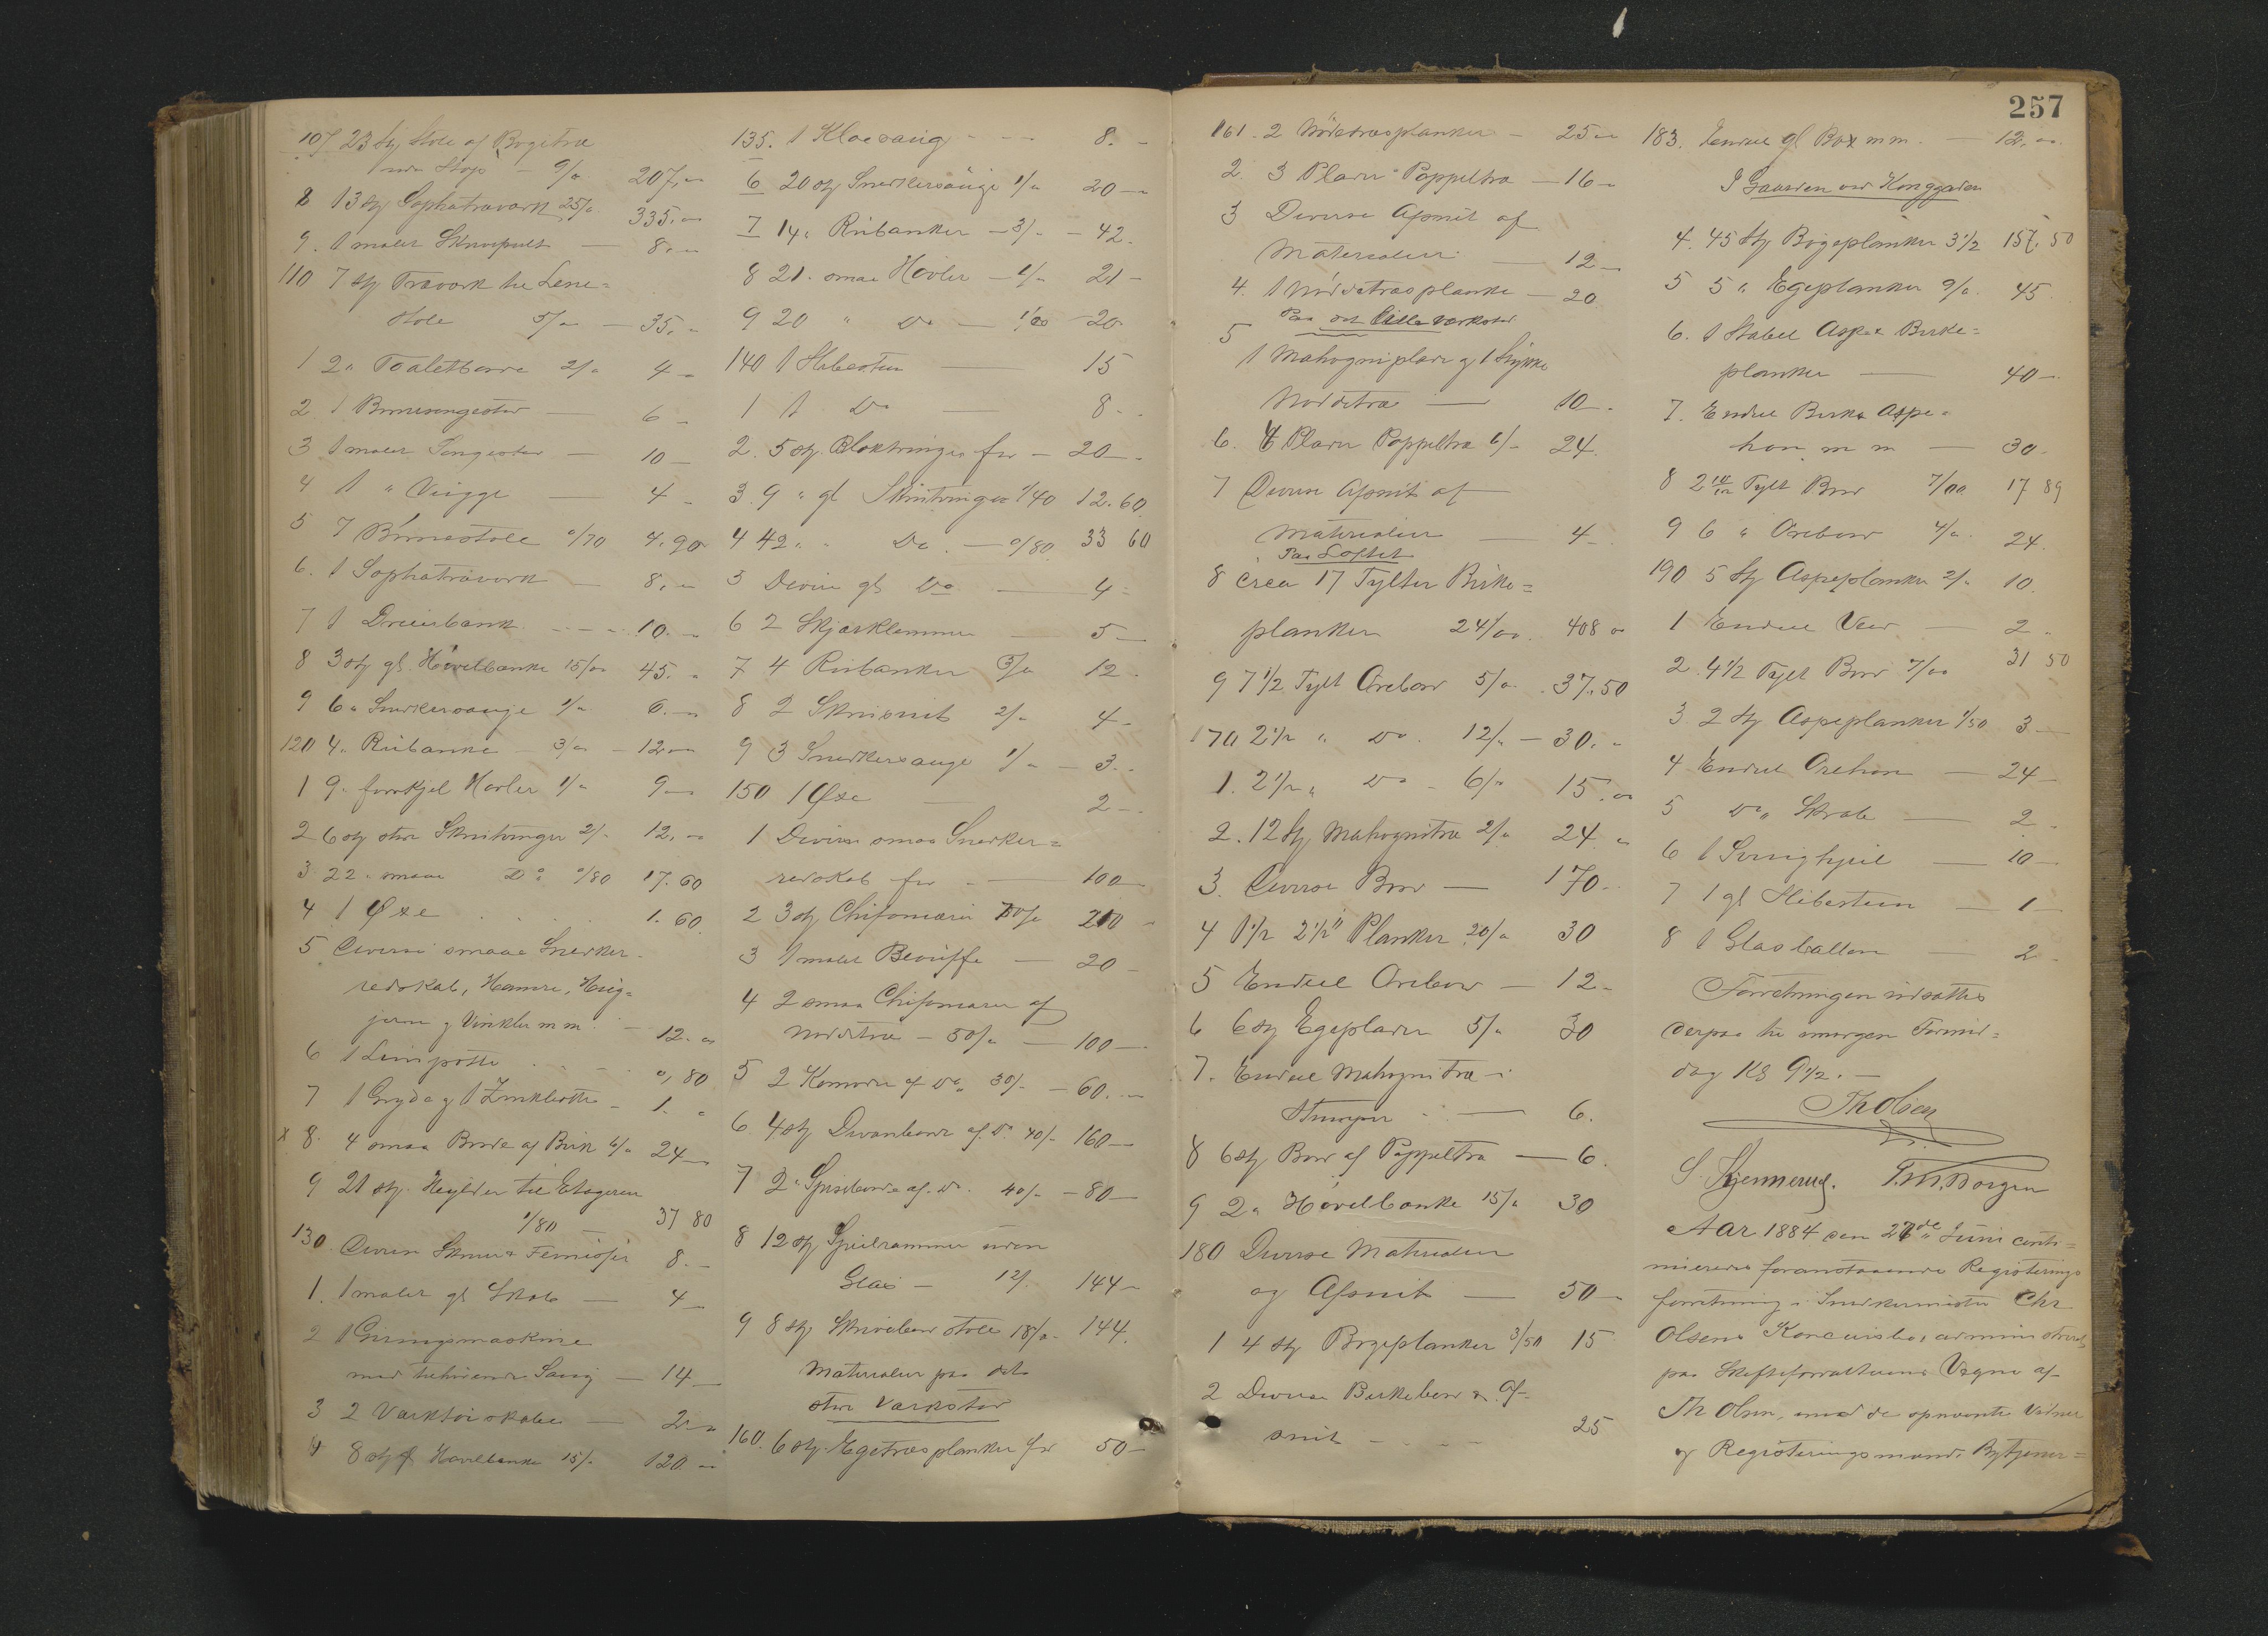 107 23 stk Stole af Bøgetræ
uden Stop - 9/" 207,"
8 13 stk Sophatræværk 25/" 335."
9. 1 malet Skrivepult - 8."
110 7 stk Træværk til Læne=
stole 5/" - 35."
1 2 " Toaletborde 2/" 4 -
2 1 Barnesengested - 6 -
3 1 malet Sengested - 10 -
4 1 " Vugge - 4 -
5 7 Børnestole "/70 4.90
6. 1 Sophatræværk - 8."
7 1 Dreierbænk - 10. -
8 3 stk gl. Høvelbænke 15/00 45."
9 6 " Snedkersauge 1/" 6. -
120 4 " Rubanke - 3/" - 12 "
1 9 " forskjel Høvler 1/" 9 -
2 6 stk store Skrutvinger 2/" 12."
3 22 " smaa Do "/80 17.60
4 1 Øxe 1.60
5 Diverse smaa Snedker-
redskab, Hamre, Hug=
jern og Vinkler mm. - 12."
6 1 Limpotte 0,80
7 1 Gryde og 1 Zinkbøtte - 1."
x 8. 4 smaa Borde af Birk 6/" 24 -
9 21 stk. Heylder til Etagerer
1/80 - 37 80
130 Diverse Skruer & 8. -
1. 1 malet gl Skab - 4 -
2 1 Gjæringsmaskine
med tilhørende Saug - 14 -
3 2 Værktøiskabe - 2 "
4 8 stk Høvelbænke 15/" 120 "
135. 1 Klovsaug - 8. -
6 20 stk Snedkersauge 1/" 20 -
7 14 " Rubanker - 3/" - 42.
8 21 " smaa Høvler - 1/" 21 -
9 20 " Do - 1/00 - 20 -
140 1 Slibesten - 15
1 1 Do - 8 -
2. 5 stk. Bloktvinger for - 20 -
3. 9 " gl Skrutvinger 1/40 12.60
4 42 " " Do. - "/80 33 60
5 Diverse gl Do - 4 -
6 2 - 5 -
7 4 Rubanker 3/" 12 -
8 2 Skrusnit 2/" 4 -
9 3 Snedkersauge 1/" - 3 -
150 1 Øxe - 2 -
1 Diverse smaa Snedker=
redskab for - 100 -
2 3 stk Chifonierer 70/" 210 -
3 1 malet - 20 -
4 2 smaa Chifonierer af
Nøddetræ - 50/" - 100 -
5 2 Komoder af Do 30/" - 60. -
6. 4 stk Divanborde af Do 40/" 160 -
7 2 " Spiseborde af Do. 40/" - 80 -
8 12 stk Speilrammer uden
Glas - 12/" 144 -
9 8 stk Skrivebordstole 18/" - 144.
Materialer paa det
store Værksted
160. 6 stk. Egetræsplanker for 50 -
257
161. 2 Nøddetræsplanker - 25 "
2. 3 Plader Poppeltræ - 16 "
3 Diverse Afsnit af
Materialer - 12 -
4. 1 Nøddetræsplanke - 20
Paa det lille Værksted
5
1 Mahogniplade og 1 Stykke
Nøddetræ - 10 -
6. 4 Plader Poppeltræ 6/- 24.
7 Diverse Afsnit af
Materialier - 4 -
Paa Loftet
8 Circa 17 Tylter Birke=
planker 24/00 408 "
9 7 1/2 Tylt Orebord 5/" 37,50
170 2 1/2 " Do. 12/" - 30."
1. 2 1/2 " Do - 6/" 15."
2. 12 stk Mahognitræ 2/" 24. "
3. Diverse Bord - 170 -
4 1 1/2 2 1/2" Planker 20/" 30
5 Endeel Orebord - 12 -
6 6 stk Egeplader 5/" 30
7. Endeel Mahognitræ -
Stumper - 6.
8 6 stk Bord af Poppeltræ - 6.
9 2 " Høvelbænke 15/" 30
180 Diverse Materialier
og Afsnit - 50 -
1 4 stk Bøgeplanker 3/50 15
2 Diverse Birkebord & Af-
snit - 25
183. Endeel gl Box mm. - 12."
I Gaarden ved Konggaden
4. 45 stk Bøgeplanker 3 1/2 157.50
5 5 " Egeplanker 9/" 45.
6. 1 Stabel Asp & Birke=
planker - 40 -
7. Endeel Birk & Aspe=
hon m m - 30 -
8 2 10/12 Tylt Bord 7/00 17 89
9 6 " Orebord 4/" 24.
190 5 stk Aspeplanker 2/" 10.
1 Endeel Ved - 2 -
2. 4 1/2 Tylt Bord 7/00 31 50
3 2 stk Aspeplanker 1/50 3 -
4 Endeel Orehon - 24 -
5 Do " Skrab - 2 -
6 1 Svinghjul - 10 -
7 1 gl Slibesten - 1 -
8 1 Glasballon - 2 -
Forretningen udsattes
derpaa til imorgen Formid=
dag Kl 9 1/2. -
Th Olsen
S. Stjernerud. T. M. Borgen
Aar 1884 den 27de Juni conti=
nueredes foranstaaende Registerings
forretning i Snedkermester Chr
Olsens Konkursbo, administreret
paa Skifteforvalterens Vegne af
Th Olsen, med de opnævnte Vidner
og Registeringsmænd Bytjener=